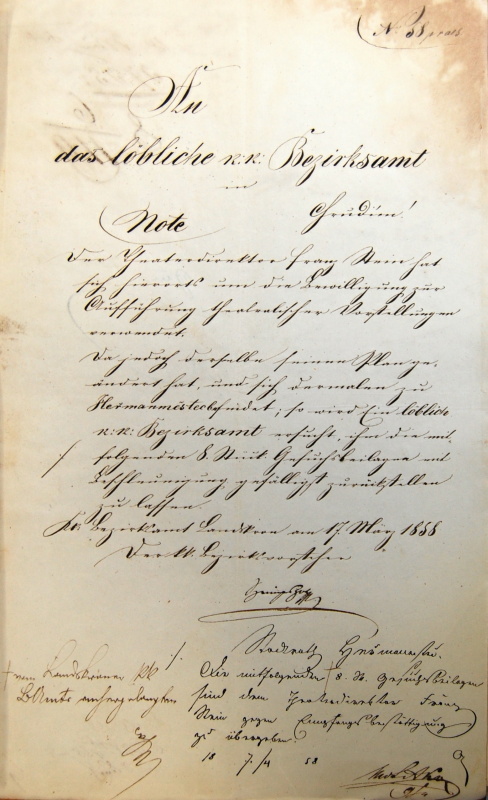 An
das löbliche k: k: Bezirksamt
in
Chrudim!
Note
Der Theaterdirektor Franz Stein hat
sich hierorts um die Bewilligung zur
Aufführung theatralischer Vorstellungen
verwendet.
Da jedoch derselbe seinen Plan ge-
ändert hat, und sich dermalen zu
Heřmanměstec befindet, so wird Ein löbliches
k: k: Bezirksamt ersucht, ihm die mit-
folgenden 8 Stück Gesuchsbeilagen mit
Beschleunigung gefälligst zurückstellen
zu lassen.
Bezirksamt Landskron am 17. März 1858
Der kk. Bezirksvorsteher
Die mitfolgenden 8 St. Gesuchsbeilagen
sind dem Theaterdirektor Franz
Stein gegen Empfangsbestättigung
zu übergeben.
18 7/4 58
vom Landskroner kk